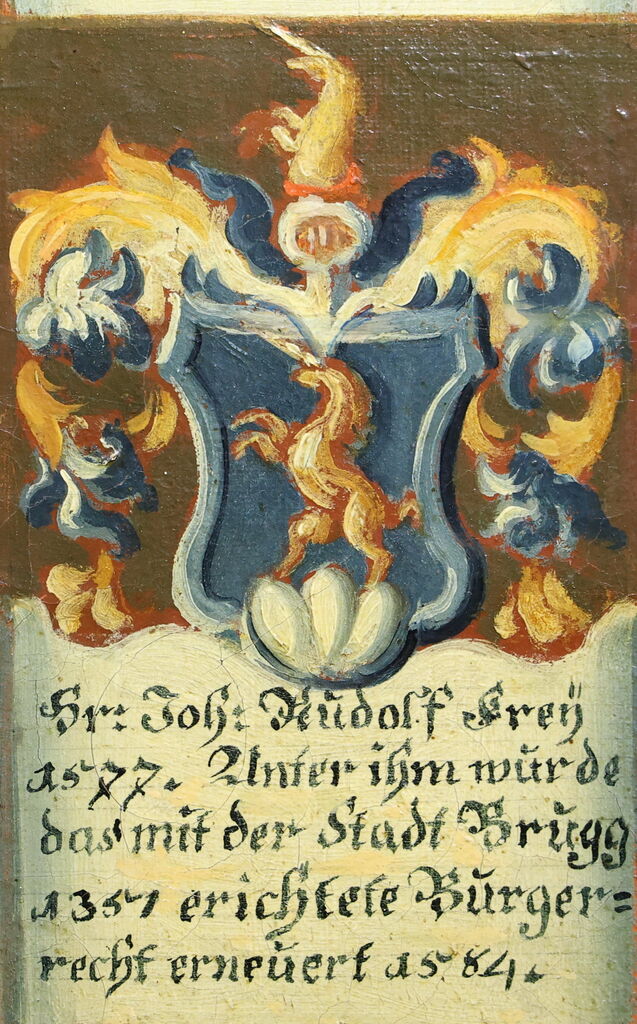 Hr: Joh: Rŭdolf Freÿ
1577. Unter ihm wŭrde
das mit der Stadt Brŭgg
1351 erichtete Bŭrger=
recht erneŭert 1584.